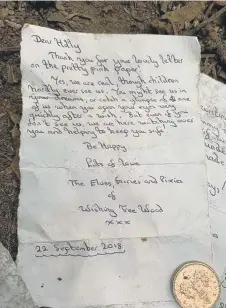 Dear Holly
Thank you for your lovely letter
on the pretty pink paper!
Yes, we are real, though children
hardly ever see us. You might see us in
your dreams, or catch a glimpse of one
of us when you open your eyes very
quickly after a wish. But even if you
don't see us, we are here watching over
you and helping to keep you safe!
Be Happy
Lots of love
The Elves, fairies and Pixies
of
Wishing Tree Wood
xxx
22 September 2018